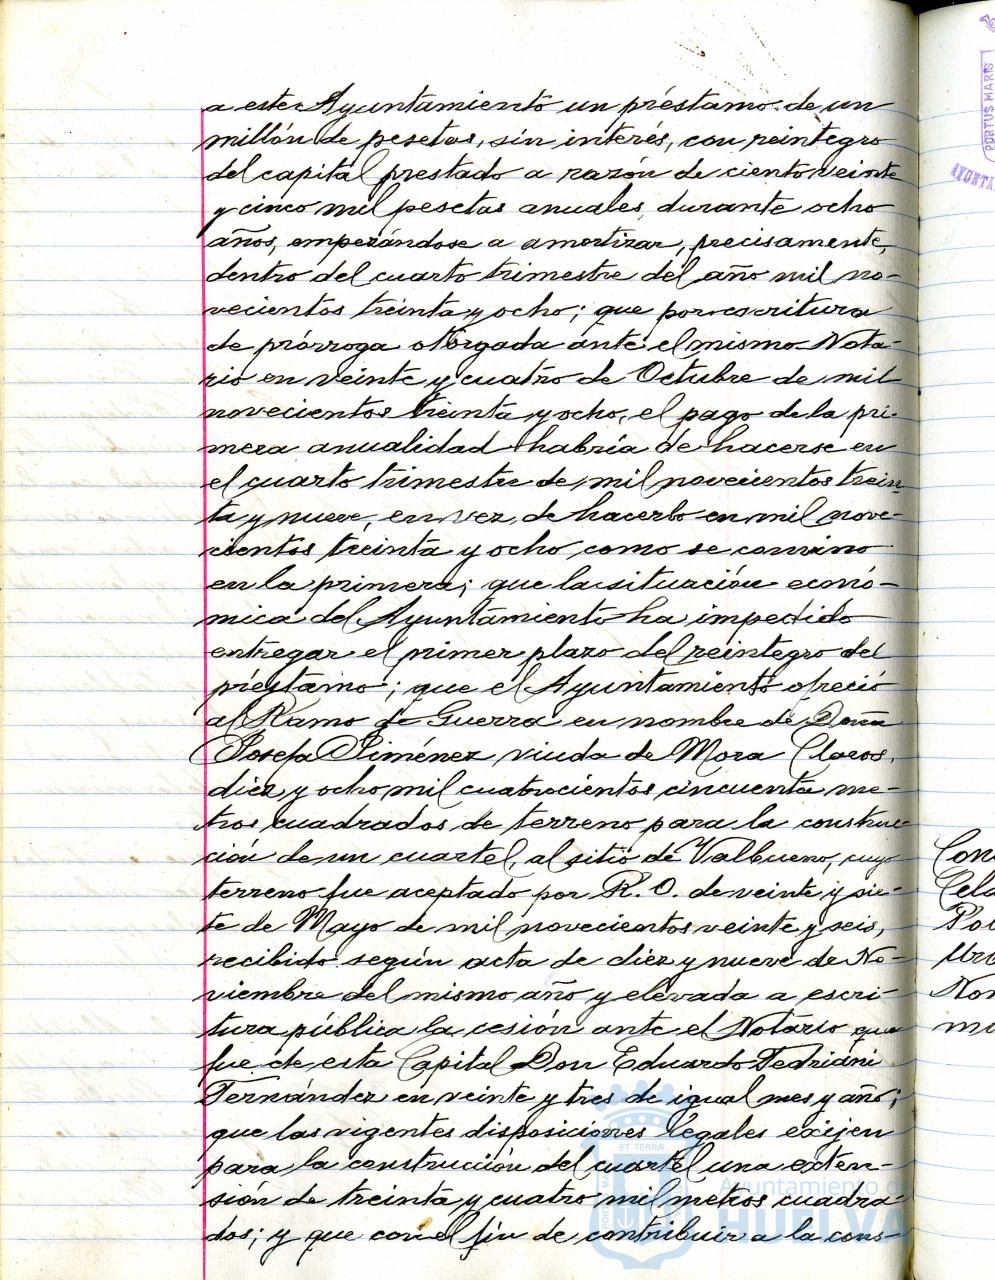 a este Ayuntamiento un préstamo de un
millón de pesetas, sin interés, con reintegro
del capital prestado a razón de ciento veinte
y cinco mil pesetas anuales, durante ocho
años, empezándose a amortizar, precisamente,
dentro del cuarto trimestre del año mil no-
vecientos treinta y ocho; que por escritura
de prórroga otorgada ante el mismo Nota-
rio en veinte y cuatro de Octubre de mil
novecientos treinta y ocho, el pago de la pri-
mera anualidad habría de hacerse en
el cuarto trimestre de mil novecientos trein-
ta y nueve, en vez de hacerlo en mil nove-
cientos treinta y ocho como se convino
en la primera; que la situación econó-
mica del Ayuntamiento ha impedido
entregar el primer plazo del reintegro del
préstamo; que el Ayuntamiento ofreció
al Ramo de Guerra en nombre de Doña
Josefa Jiménez viuda de Mora Claros,
diez y ocho mil cuatrocientos cincuenta me-
tros cuadrados de terreno para la construc-
ción de un cuartel, al sitio de Valbueno, cuyo
terreno fue aceptado por R. O. de veinte y sie-
te de Mayo de mil novecientos veinte y seis,
recibido según acta de diez y nueve de No-
viembre del mismo año y elevada a escri-
tura pública la cesión ante el Notario que
fue de esta Capital Don Eduardo Fedriani
Fernández en veinte y tres de igual mes y año;
que las vigentes disposiciones legales exijen
para la construcción del cuartel una exten-
sión de treinta y cuatro mil metros cuadra-
dos; y que con el fin de contribuir a la cons-
PORTUS MARIS
AYUNTA
Con
Cela
Nom
mi
ET TERRÆ
Ayuntamiento de
HUELVA